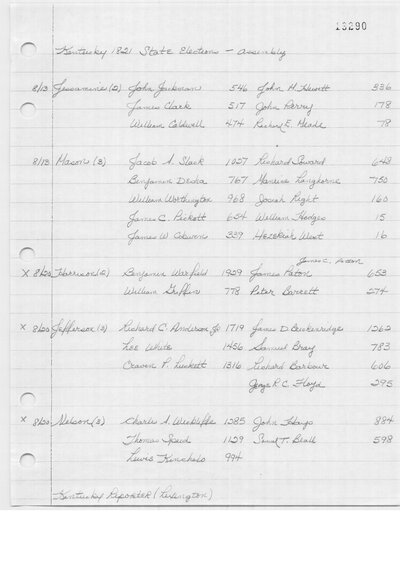 13290
Kentucky 1821 State Elections - Assembly
8/13 Jessamine (2) John Jackman 546 John H. Hewett 336
James Clark 517 John Perry 178
William Caldwell 474 Richard E. Meade 78
8/13 Mason (3) Jacob A. Slack 1027 Richard Soward 648
Benjamin Desha 767 Maurice Langhorne 750
William Worthington 968 Josiah 160
James C. Pickett 654 William Hodges 15
James W. Coburn 339 Hezekiah West 16
James C. Paton
X 8/20 Harrison (2) Benjamin Warfield 1029 James Paton 653
William Griffin 778 Peter Barrett 274
X 8/20 Jefferson (3) Richard C. Anderson Jr 1719 James D. Breckenridge 1262
Lee White 1456 Samuel Bray 783
Craven P. Luckett 1316 Richard Barbour 606
George R.C. Floyd 295
X 8/20 Nelson (3) Charles A. Wickliffe 1285 John Hays 884
Thomas Speed 1129 Samuel T. Beall 598
Lewis 994
Kentucky Reporter (Lexington)